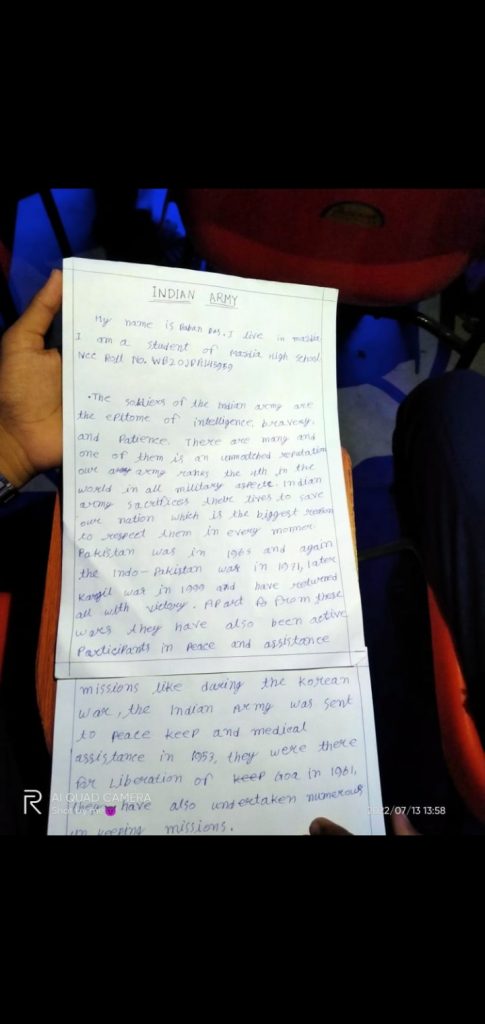 INDIAN ARMY
My name is Rohan Das. I live in majdia
I am a student of Majdia High School
Ncc Roll No.
• The soldiers of the Indian army are
the epitome of intelligence, bravery,
and Patience. There are many and
one of them is an unmatched reputation
our army ranks the 4th in the
world in all military aspects. Indian
army sacrifices their lives to save
our nation which is the biggest reason
to respect them in every manner.
Pakistan war in 1965 and again
the Indo-Pakistan war in 1971, later
Kargil war in 1999 and have returned
all with victory. Apart from these
wars they have also been active
Participants in Peace and assistance
missions like during the Korean
war, the Indian Army was sent
to Peace keep and medical
assistance in 1953, they were there
for Liberation of Goa in 1961,
they have also undertaken numerous
un keeping missions.
AI QUAD CAMERA
Shot by
2022/07/13 13:58